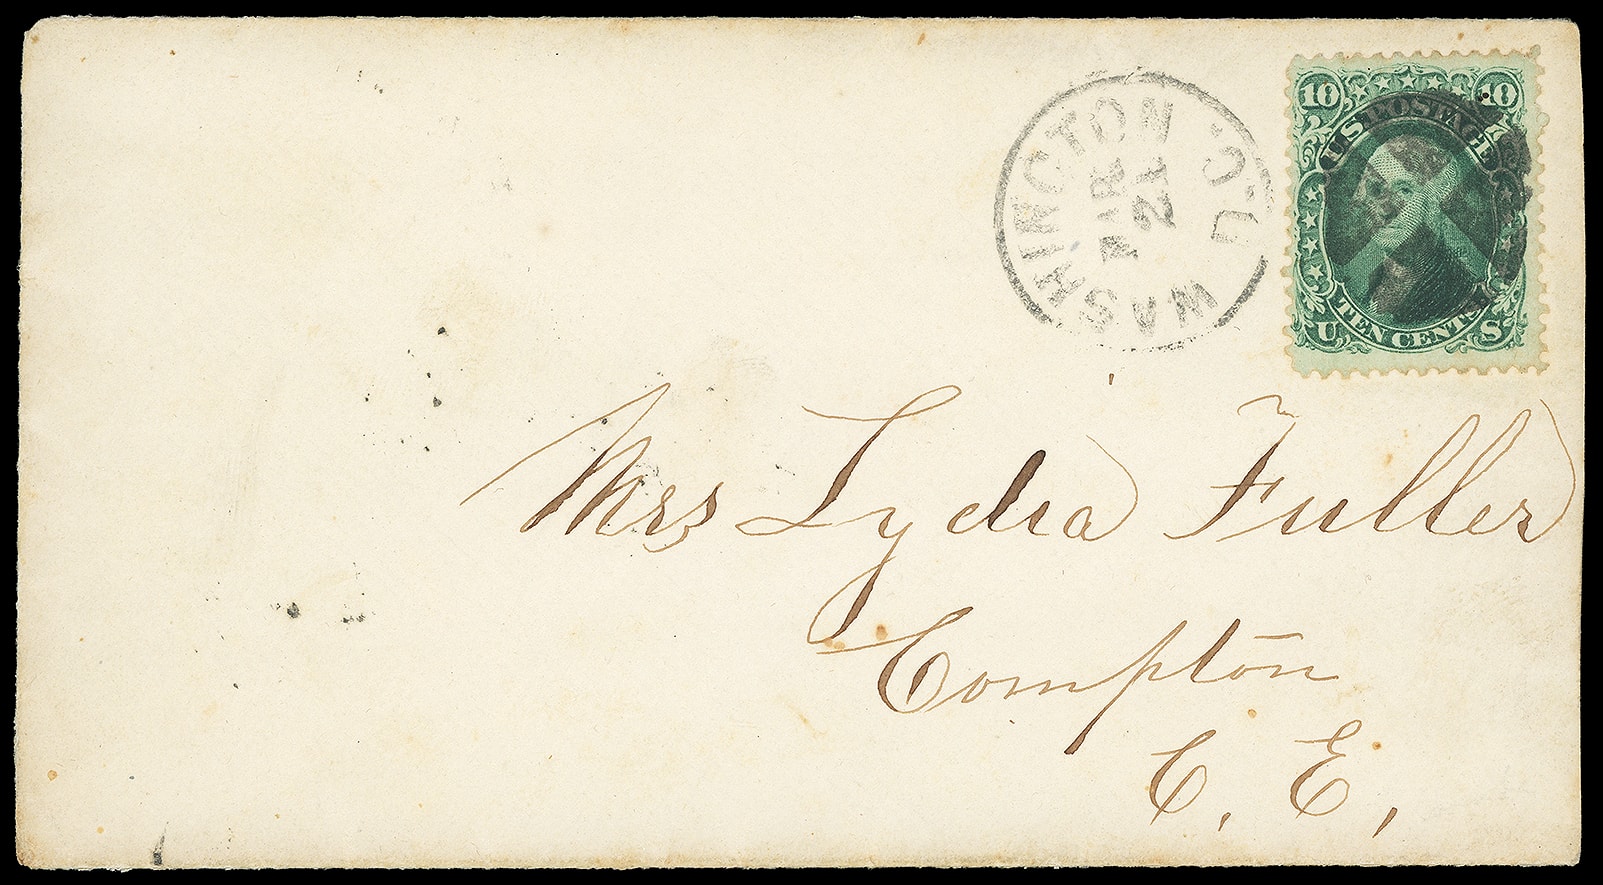 WASHINGTON D.C.
MAR
21
10 10
U.S. POSTAGE
TEN CENTS
U S
Mrs Lydia Fuller
Compton
C. E.